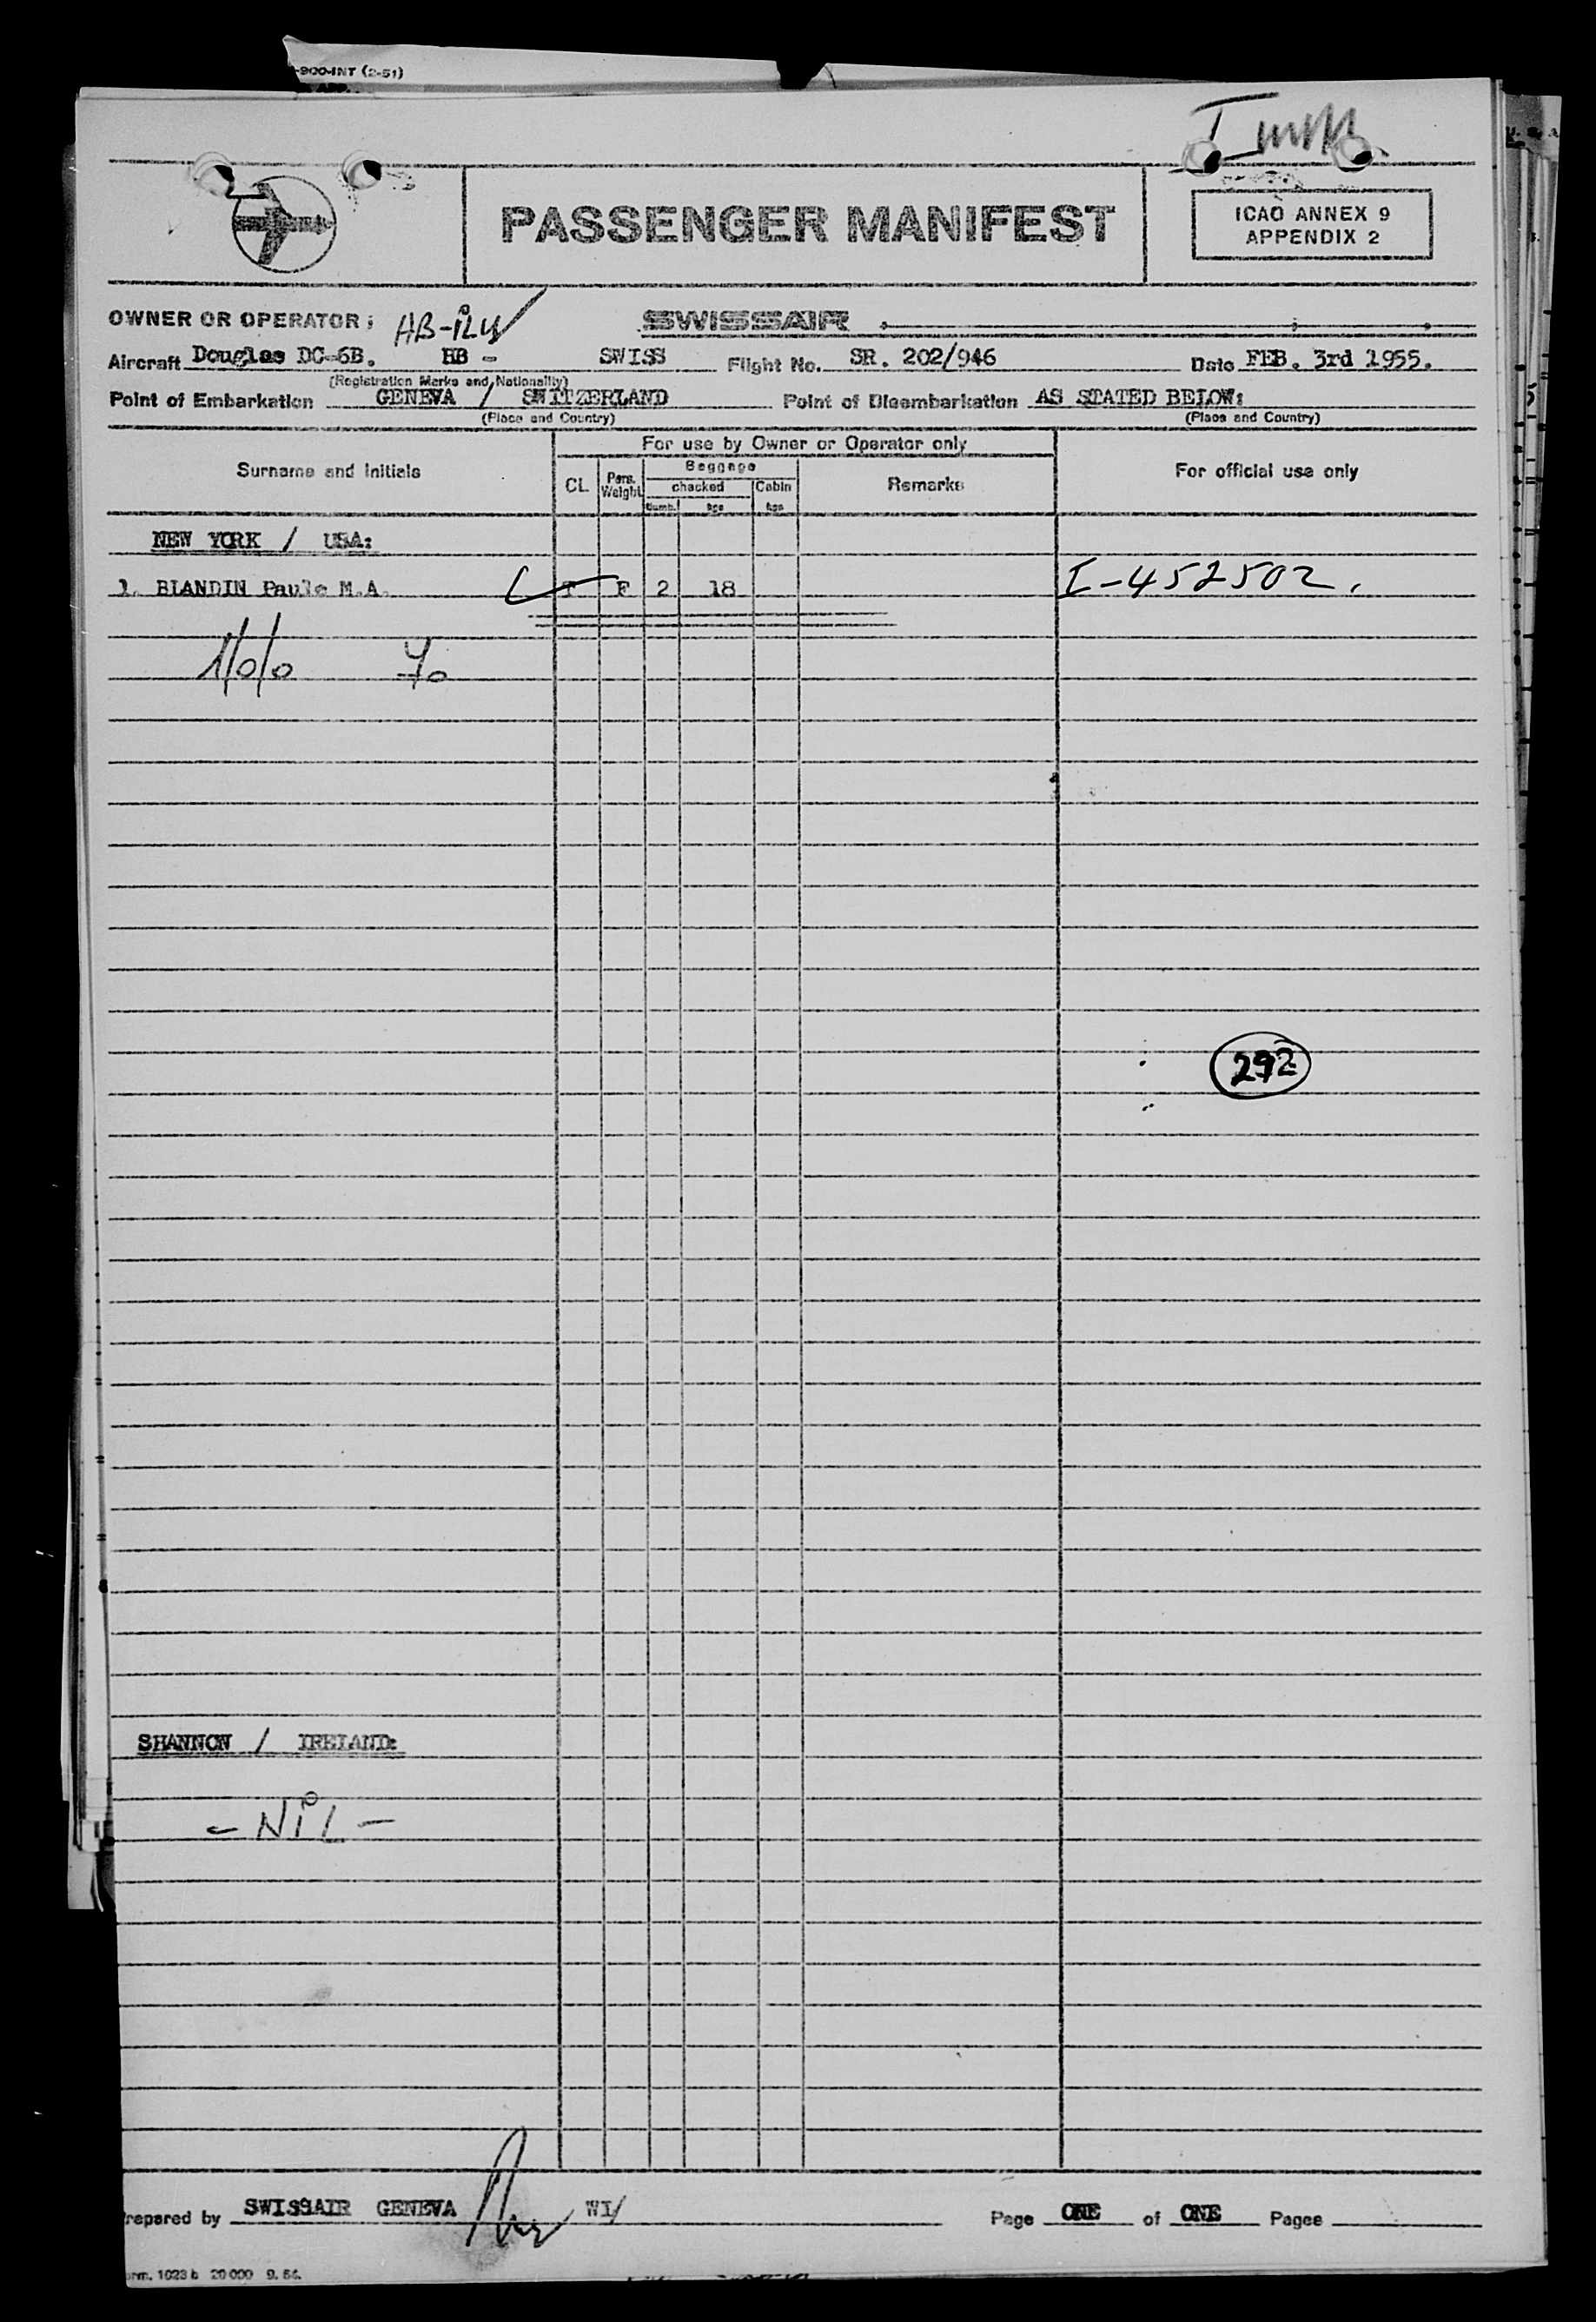 -900-INT (2-51)
PASSENGER MANIFEST
ICAO ANNEX 9
APPENDIX 2
OWNER OR OPERATOR: HB-iLU SWISSAIR
Aircraft Douglas DC-6B. HB - SWISS Flight No. SR. 202/946 Date FEB. 3rd 1955.
(Registration Marks and Nationality)
Point of Embarkation GENEVA / SWITZERLAND Point of Disembarkation AS STATED BELOW:
(Place and Country) (Place and Country)
For use by Owner or Operator only
Surname and Initials CL Pers. Weight Baggage checked Numb. kgs Cabin kgs Remarks For official use only
NEW YORK / USA:
1. BLANDIN Paule M.A. T F 2 18 I-452502.
1/0/0 70
292
SHANNON / IRELAND:
- NiL -
repared by SWISSAIR GENEVA WI/ Page ONE of ONE Pages
orm. 1023 b 20 000 9. 54.